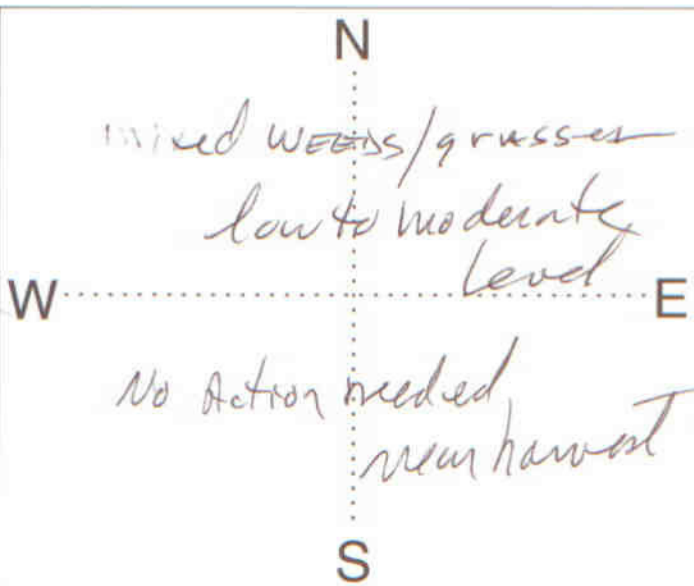 N
mixed WEEDS/grasses
low to moderate
level
W E
No Action needed
near harvest
S